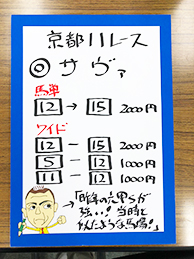 京都11レース
◎サヴァ
馬単
12 → 15 2000円
ワイド
12 − 15 2000円
5 − 12 1000円
11 − 12 1000円
→「昨年の六甲Sが
強‥!当時と
似たような馬場!」